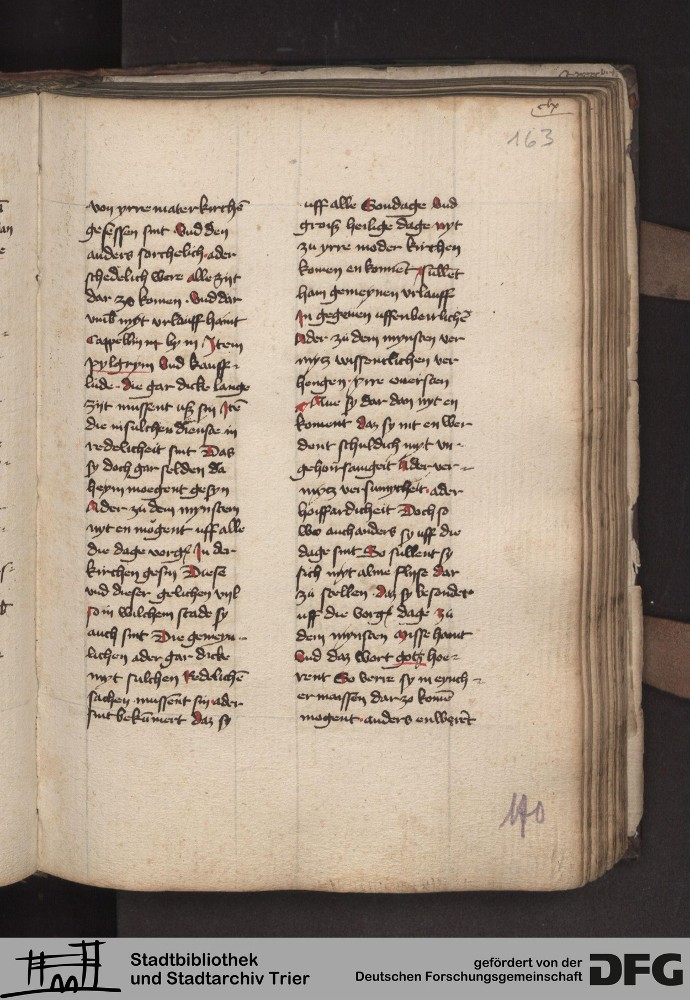 clx
163
von yrre mater kirchē
gesessen sint Vnd den
anders sorchelich ader
schedelich were alle zijt
dar zo komen Vnd dar
vmb myt vrlauff haint
Cappellin int by in Item
pylgrym Vnd kauff-
lude die gar dicke lange
zijt mussent uß sin Itē
die in sulchen dienste in
redelicheit sint Das
sy doch gar selden da
heym moegent gesyn
Ader zu dem mynsten
nyt en mögent uff alle
die dage vorgͭ In der
kirchen gesin Diese
vnd dieser gelichen vyl
so in wilchem stade sy
auch sint Die gemeyn-
lichen ader gar dicke
myt sulchen Redelichē
sachen mussent sin ader
sint bekūmert Daz sy
uff alle Sondage Vnd
groiß heilige dage nyt
zu yrre moder kirchen
komen en konnēt Sullēt
han gemeynen vrlauff
In gegeuen uffenberlichē
Ader zu dem mynsten ver
mytz wissentlichen ver
hengen yrre ouersten
Aue sy dar dan nyt en
koment daz sy nit en wer
dent schuldich myt vn-
gehoirsamgeit Ader ver-
mytz versumpcheit ader
hoiffardicheit Doch so
wo auch anders sy uff die
dage sint So sullent sy
sich myt alme flysse dar
zu stellen daz sy besonder
uff die vorgͭ dage zu
dem mynsten Misse haint
Vnd daz wort gotz hoe-
rent So verre sy in eynch-
er maissen dar zo komē
mogent anders en werēt
140
Stadtbibliothek
und Stadtarchiv Trier
gefördert von der
Deutschen Forschungsgemeinschaft
DFG